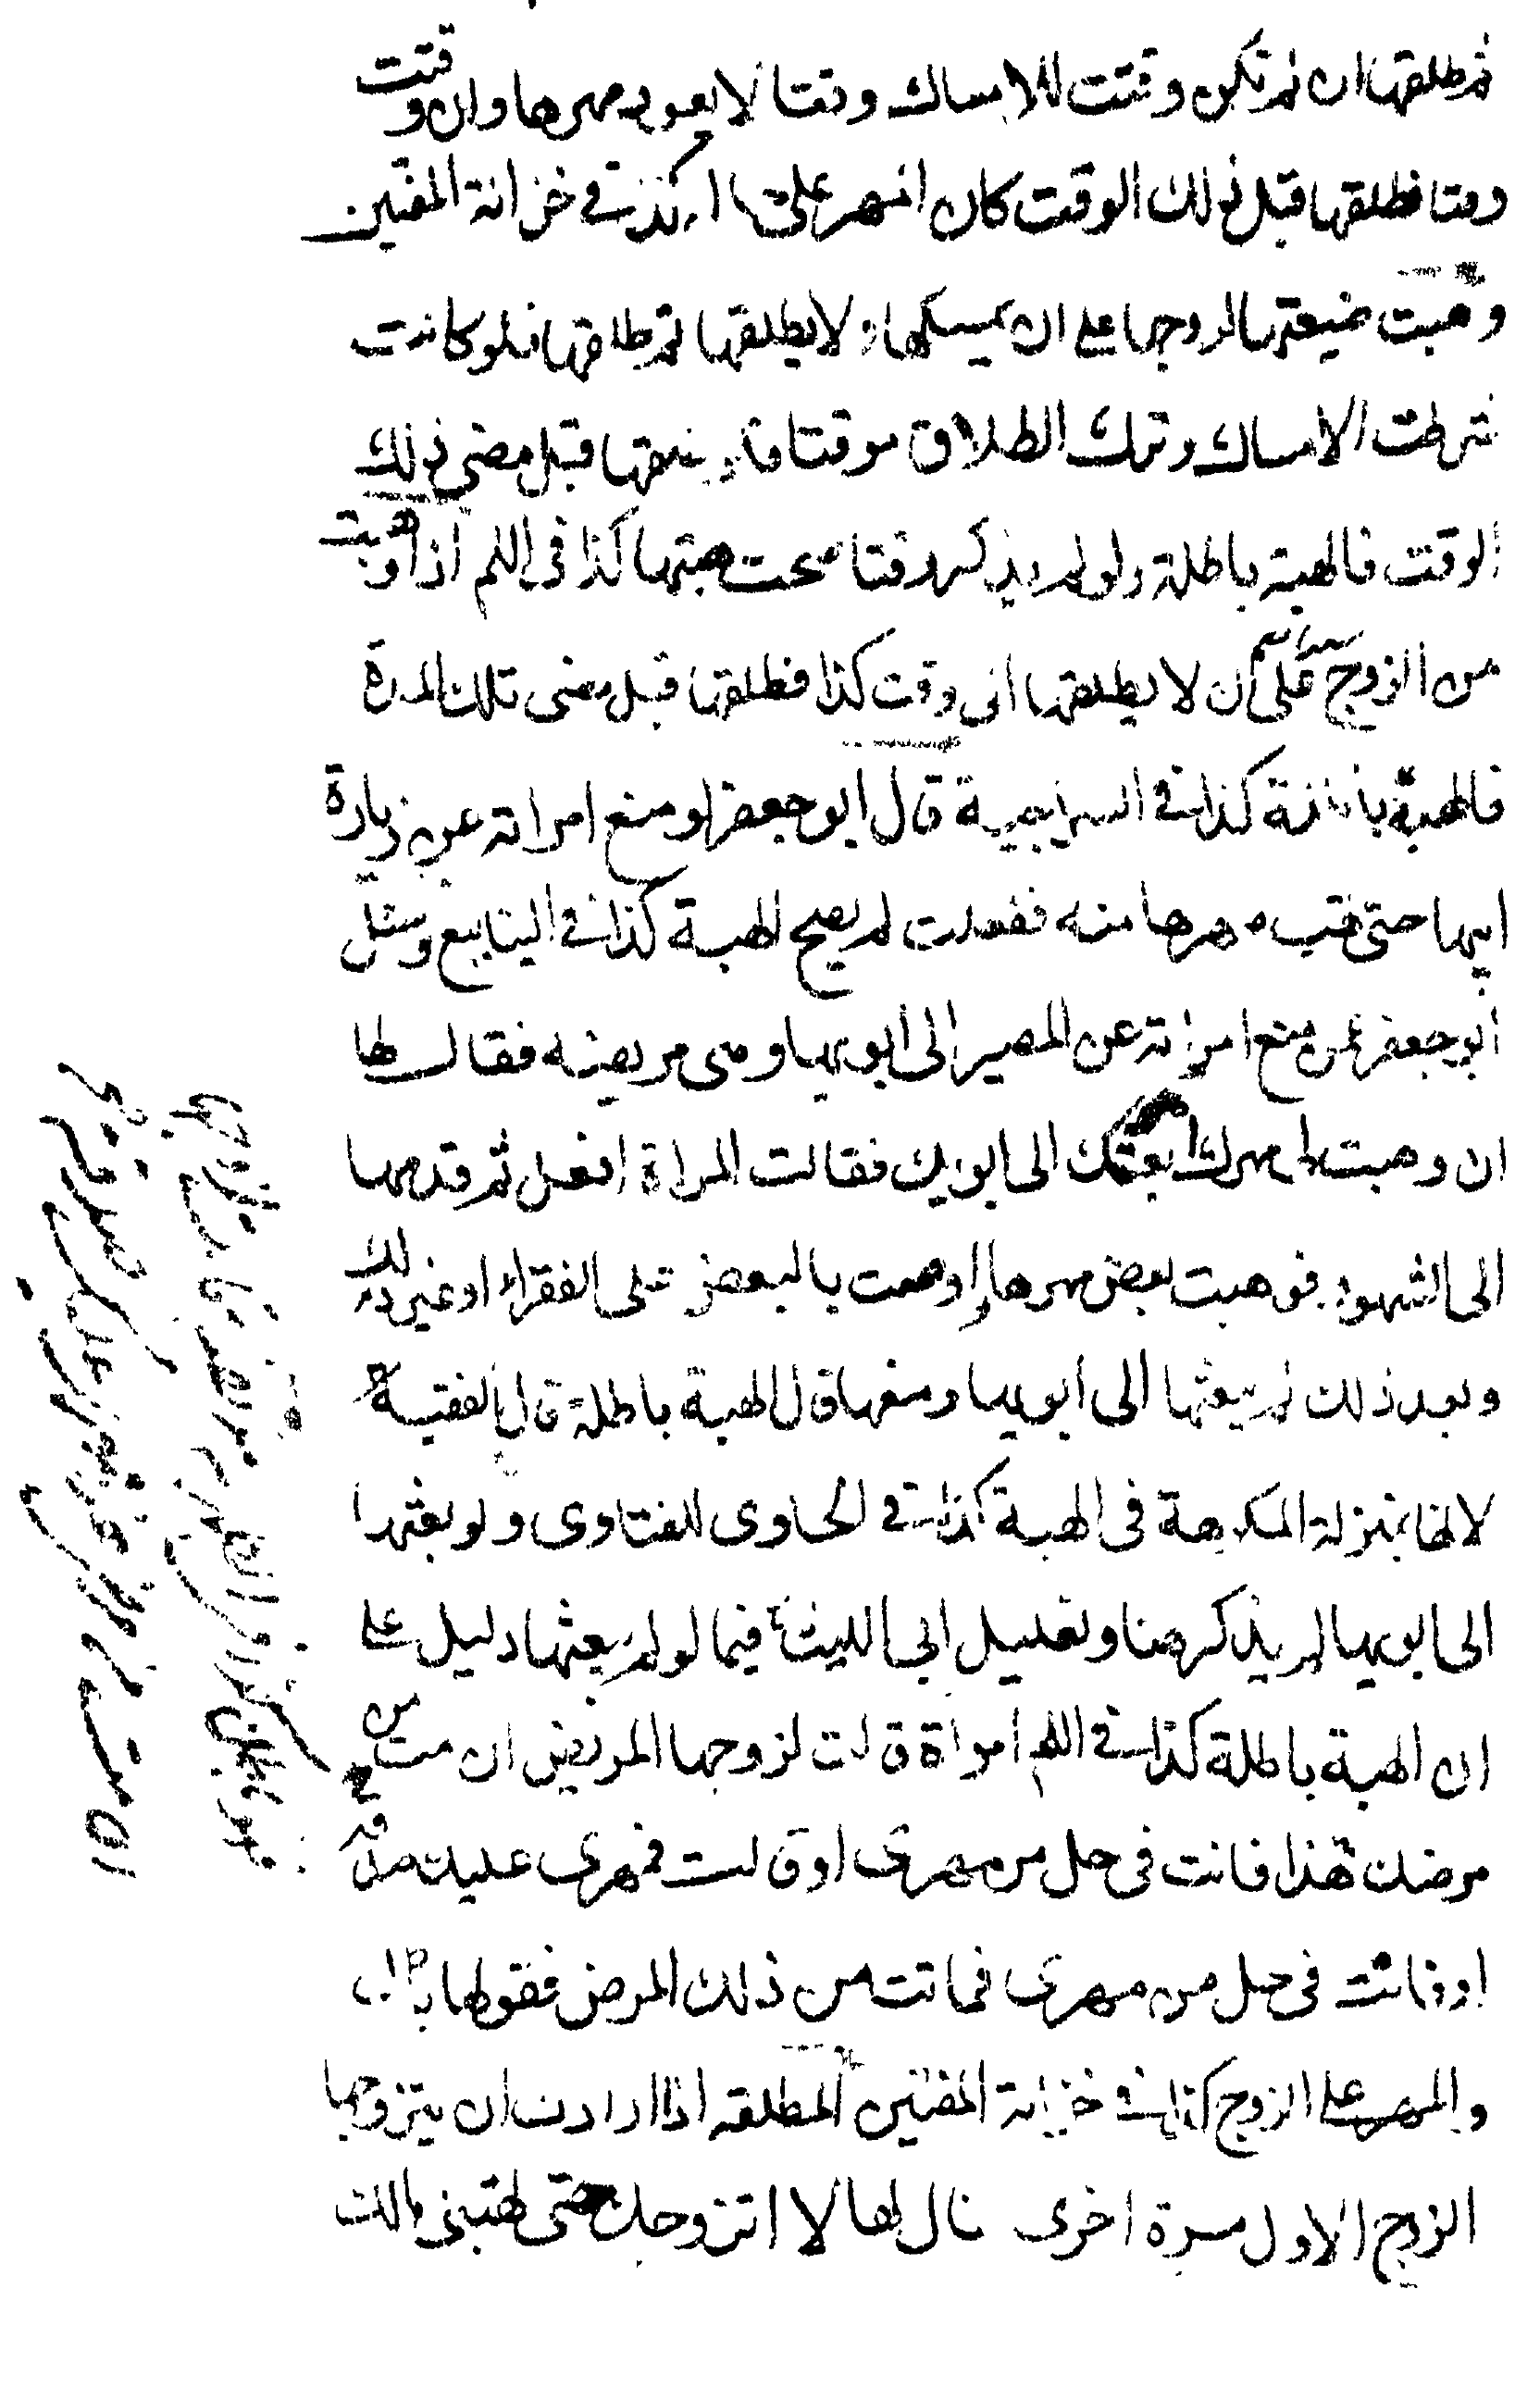 ثم طلقها ان لم تكن وقتت للامساك وقتا لا يعود مهرها وان وقتت
وقتا فطلقها قبل ذلك الوقت كان المهر عليه كذا في خزانة المفتين
وهبت ضيعتها لزوجها على ان يمسكها ولا يطلقها ثم طلقها فلو كانت
شرطت الامساك وترك الطلاق موقتا فان طلقها قبل مضي ذلك
الوقت فالهبة باطلة ولو لم يذكر وقتا صحت هبتها كذا في اللم اذا وهبت
من الزوج على ان لا يطلقها الى وقت كذا فطلقها قبل مضى تلك المدة
فالهبة جائزة كذا في السراجية قال ابو جعفر لو منع امراته عن زيارة
ابيها حتى تهب مهرها منه ففعلت لم يصح الهبة كذا في الينابيع وسئل
ابو جعفر عمن منع امراته عن المصير الى ابويها وهى مريضه فقال لها
ان وهبت لى مهرك ابعثك الى ابويك فقالت المراة افعل ثم قدمها
الى الشهود فوهبت بعض مهرها واوصت بالبعض على الفقراء او غير ذلك
وبعد ذلك لم يبعثها الى ابويها ومنعها قال الهبة باطلة قال الفقيه
لانها بمنزلة المكرهة فى الهبة كذا في الحاوى للفتاوى ولو بعثها
الى ابويها لم يذكر هنا وتعليل ابى الليث فيما لو لم يبعثها دليل على
ان الهبة باطلة كذا في اللم امراة قالت لزوجها المريض ان مت من
مرضك هذا فانت فى حل من مهرى او قالت فمهرى عليك صدقة
او فانت فى حل من مهرى فمات من ذلك المرض فقولها باطل
والمهر على الزوج كذا في خزانة المفتين المطلقه اذا ارادت ان يتزوجها
الزوج الاول مرة اخرى قال لها لا اتزوجك حتى تهبنى مالك